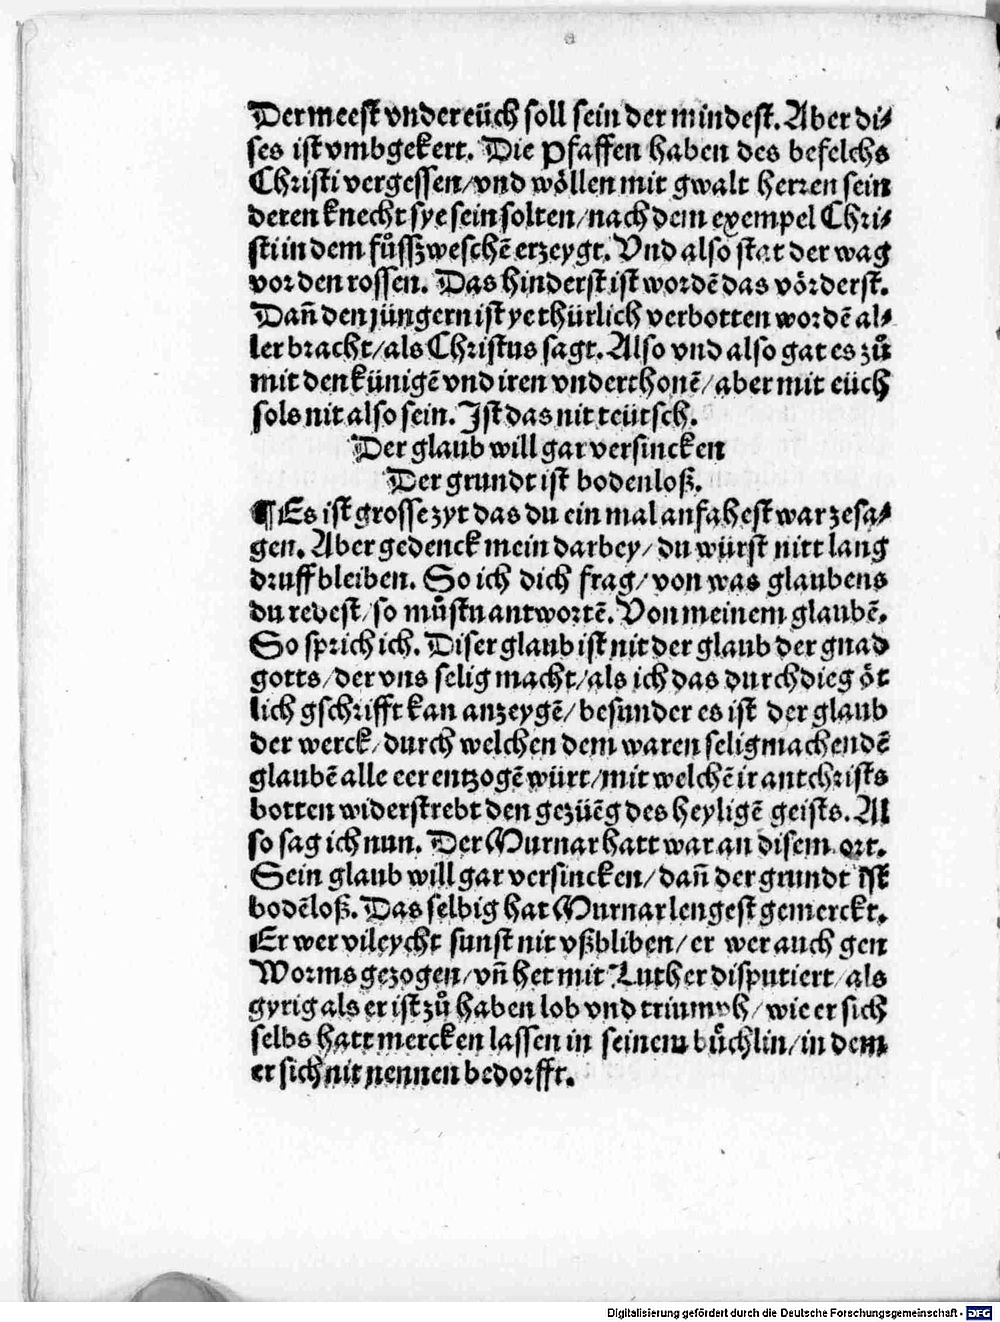 Der meest vnder eüch soll sein der mindest. Aber di⸗
ses ist vmbgekert. Die Pfaffen haben des befelchs
Christi vergessen/vnd wöllen mit gwalt herren sein
deren knecht sye sein solten/nach dem exempel Chri⸗
sti in dem fůsszweschē erzeygt. Vnd also stat der wag
vor den rossen. Das hinderst ist wordē das vörderst.
Dañ den jüngern ist ye thürlich verbotten wordē al⸗
ler bracht/als Christus sagt. Also vnd also gat es zů
mit den künigē vnd iren vnderthonē/aber mit eüch
sols nit also sein. Ist das nit teütsch.
Der glaub will gar versincken
Der grundt ist bodenloß.
¶ Es ist grosse zyt das du ein mal anfahest war zesa⸗
gen. Aber gedenck mein darbey/du würst nitt lang
druff bleiben. So ich dich frag/von was glaubens
du redest/so můstu antwortē. Von meinem glaubē.
So sprich ich. Diser glaub ist nit der glaub der gnad
gotts/der vns selig macht/als ich das durch die göt
lich gschrifft kan anzeygē/besunder es ist der glaub
der werck/durch welchen dem waren seligmachendē
glaubē alle eer entzogē würt/mit welchē ir antchrists
botten widerstrebt den gezüēg des heyligē geists. Al
so sag ich nun. Der Murnar hatt war an disem ort.
Sein glaub will gar versincken/dañ der grundt ist
bodēloß. Das selbig hat Murnar lengest gemerckt.
Er wer vileycht sunst nit vßbliben/er wer auch gen
Worms gezogen/vñ het mit Luther disputiert/als
gyrig als er ist zů haben lob vnd triumph/wie er sich
selbs hatt mercken lassen in seinem bůchlin/in dem
er sich nit nennen bedorfft.
Digitalisierung gefördert durch die Deutsche Forschungsgemeinschaft - DFG